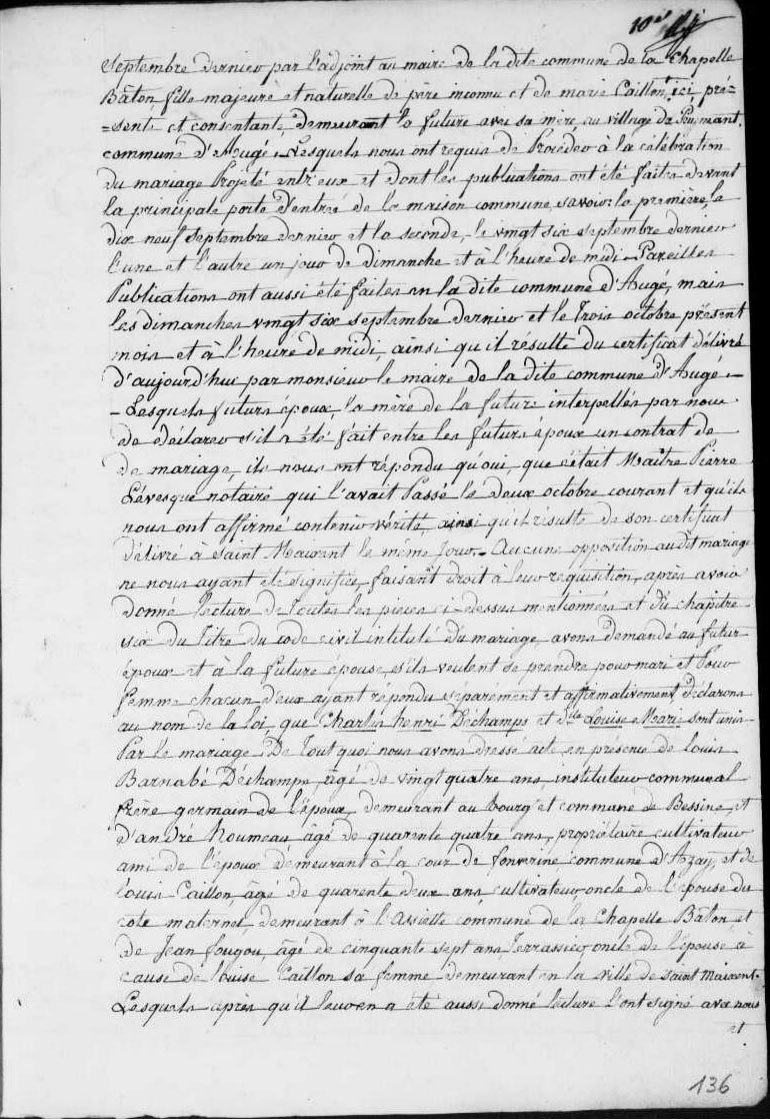 10e
Septembre dernier par l'adjoint au maire de la dite commune de la Chapelle
Bâton fille majeure et naturelle de père inconnu et de marie Caillon, ici pré=
=sente et consentante, demeurant la future avec sa mère, au village de
commune d'Augé - Lesquels nous ont requis de Procéder à la célébration
du mariage Projeté entr'eux et dont les publications ont été faites devant
la principale porte d'entrée de la maison commune, savoir: la première, le
dix neuf septembre dernier et la seconde, le vingt six septembre dernier
l'une et l'autre un jour de dimanche et à l'heure de midi - Pareilles
Publications ont aussi été faites en la dite commune d'Augé, mais
les dimanches vingt six septembre dernier et le trois octobre présent
mois et à l'heure de midi, ainsi qu'il résulte du certificat délivré
d'aujourd'hui par monsieur le maire de la dite commune d'Augé -
- Lesquels futurs époux, la mère de la future interpellés par nous
de déclarer s'il a été fait entre les futurs époux un contrat de
de mariage, ils nous ont répondu qu'oui, que c'était Maître Pierre
Lévesque notaire qui l'avait Passé le deux octobre courant et qu'ils
nous ont affirmé contenir vérité, ainsi qu'il résulte de son certificat
délivré à Saint Maixent le même Jour - Aucune opposition au dit mariage
ne nous ayant été signifiée, faisant droit à leur requisition, après avoir
donné lecture de toutes les pièces ci-dessus mentionnées et du chapitre
six du Titre du code civil intitulé du mariage, avons demandé au futur
époux et à la future epouse, s'ils veulent se prendre pour mari et Pour
femme chacun d'eux ayant répondu separément et affirmativement, déclarons
au nom de la loi, que Charles henri Déchamps et dlle Louise Marie sont unis
Par le mariage. De Tout quoi nous avons dressé acte, en présence de Louis
Barnabé Déchamps, âgé de vingt quatre ans, instituteur communal
frère germain de l'époux, demeurant au bourg et commune de Bessine, et
d'andré houmeau âgé de quarente quatre ans, propriétaire cultivateur
ami de l'époux demeurant à la cour de commune d'Azay, et de
louis Caillon, âgé de quarente deux ans, cultivateur oncle de l'épouse du
coté maternel, demeurant à l'Assiette commune de la Chapelle Bâton et
de Jean fougou, âgé de cinquante sept ans, Terrassier, oncle de l'épouse à
cause de louise Caillon sa femme demeurant en la ville de Saint Maixent.
Lesquels après qu'il leur en a été aussi donné lecture l'ont signé avec nous
et
136